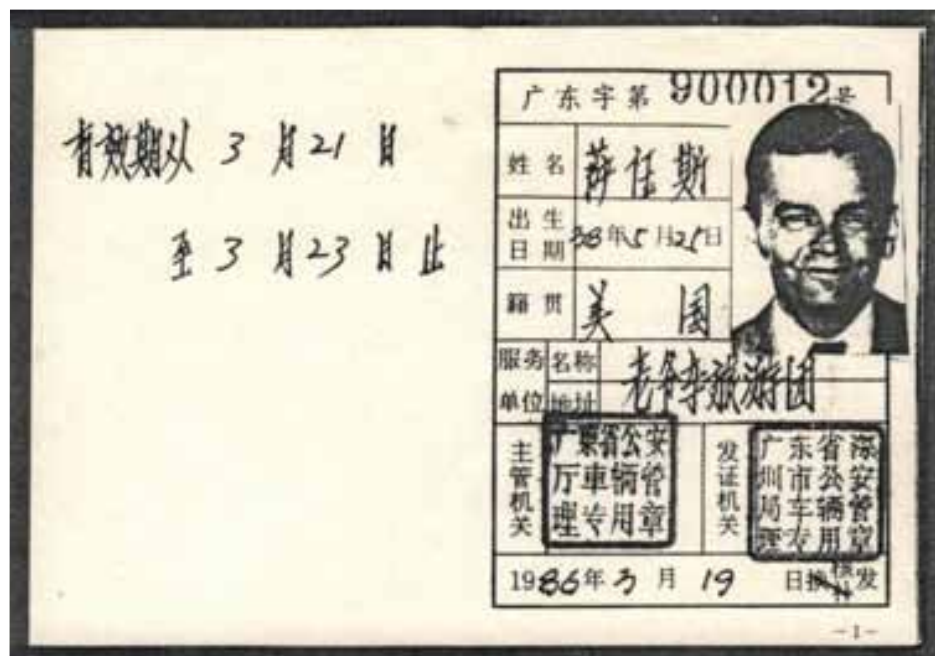 有效期从 3 月 21 日
至 3 月 23 日 止
广东字第 900012号
姓名 薛佳斯
出生日期 38年5月25日
籍贯 美 国
服务单位 名称 老爷车旅游团
地址
主管机关 广东省公安厅車辆管理专用章
发证机关 广东省深圳市公安局车辆管理专用章
1986年3月19日换 发
-1-